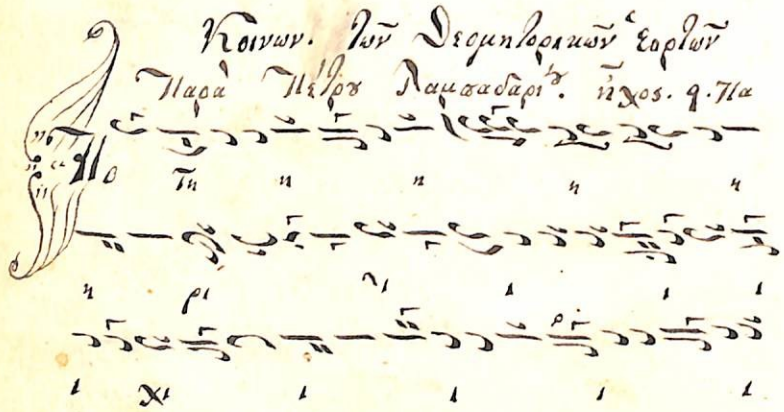 Κοινων. τῶν Θεομητορικῶν ἑορτῶν
Παρὰ Πέτρου Λαμπαδαρίου. ἦχος. q. Πα
Πο τη η η η η
η ρι ι ι ι ι
ι χι ι ι ι ι